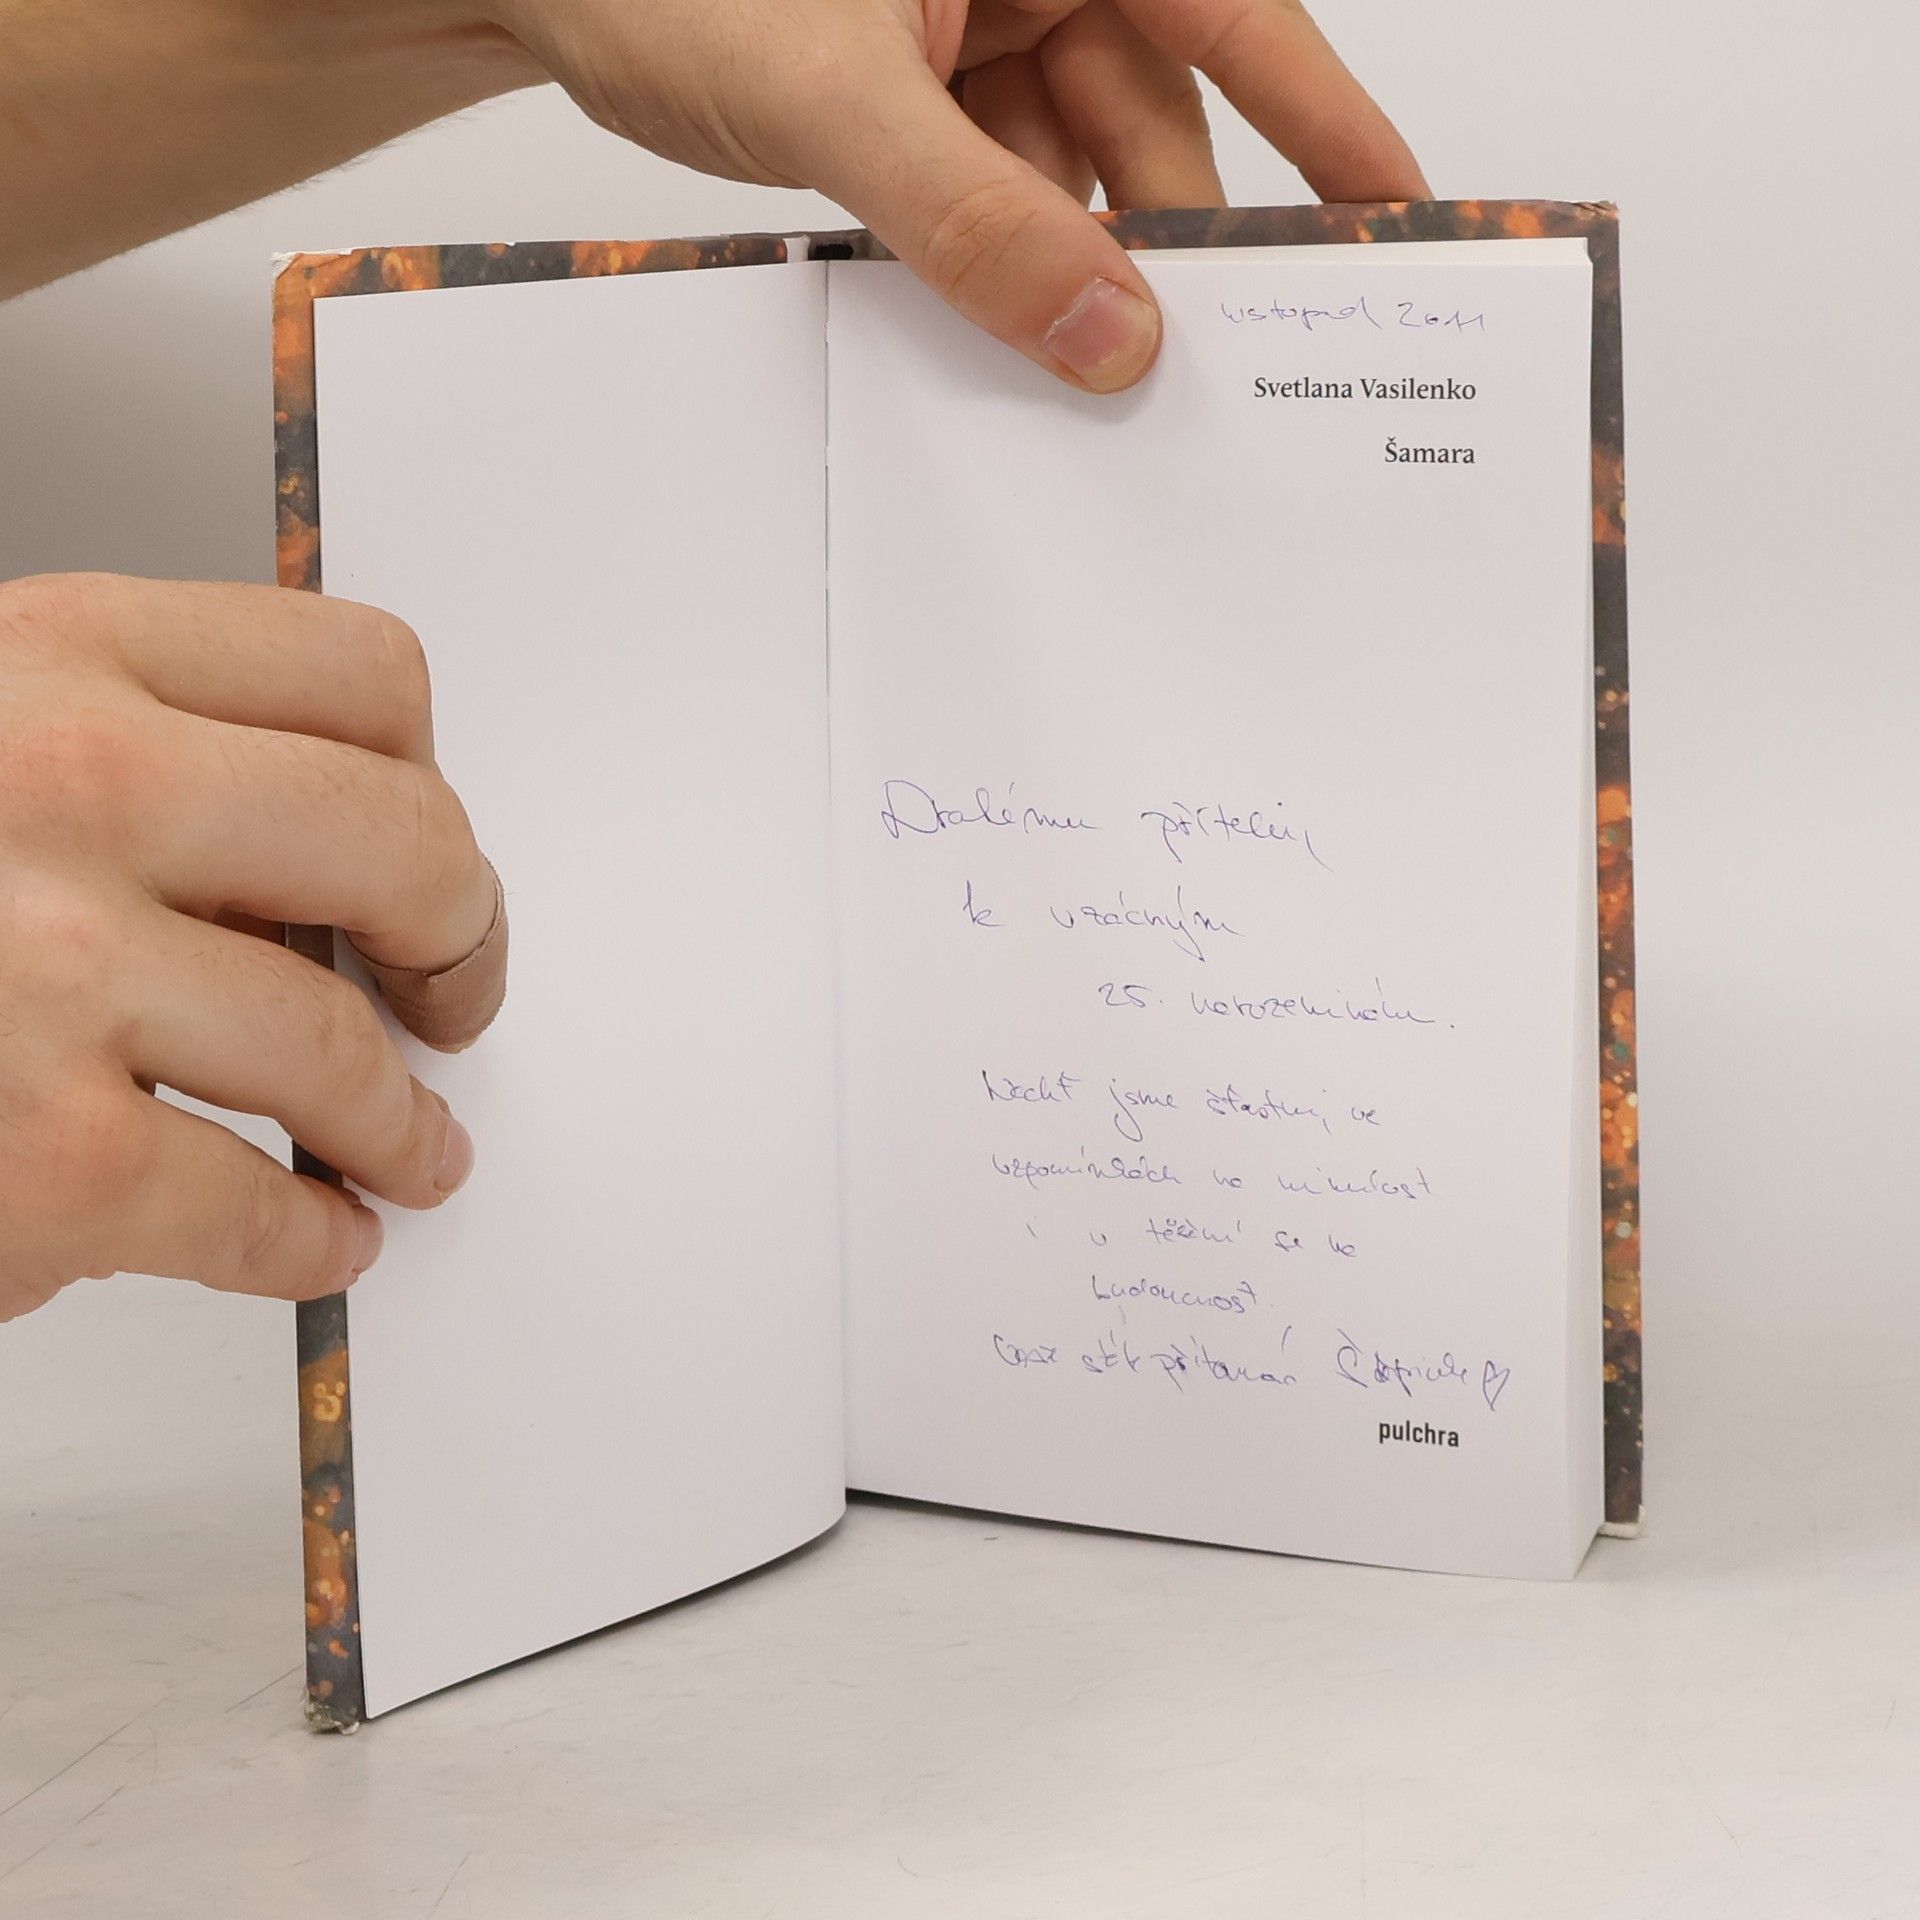 listopad 2011
Svetlana Vasilenko
Šamara
Drahému příteli,
k vzácným
25. narozeninám.
Nechť jsme šťastni, ve
vzpomínkách na minulost
i v těšení se na
budoucnost.
pulchra